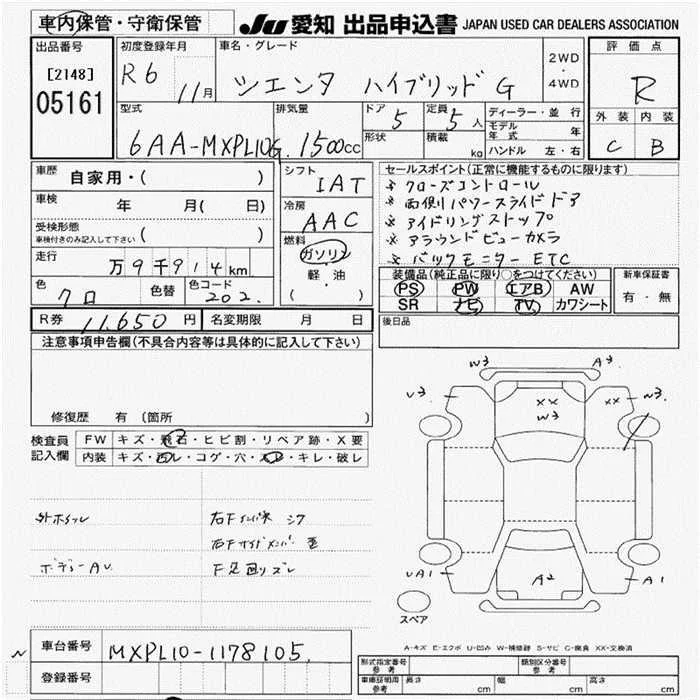 車内保管・守衛保管
JU 愛知 出品申込書 JAPAN USED CAR DEALERS ASSOCIATION
出品番号
[2148]
05161
初度登録年月
R6 11月
車名・グレード
シエンタ ハイブリッド G
2WD
・
4WD
評価点
R
外装 内装
C B
型式
6AA-MXPL10G
排気量
1500cc
ドア 5
形状
定員 5人
積載 kg
ディーラー・並行
モデル年式 年
ハンドル 左・右
車歴 自家用・( )
車検 年 月( 日)
受検形態
車検付きのみ記入して下さい ( )
走行 万9千914km
色 クロ 色替 色コード 202
シフト IAT
冷房 AAC
燃料
ガソリン
軽・油
( )
セールスポイント(正常に機能するものに限ります)
※ クローズコントロール
※ 両側パワースライドドア
※ アイドリングストップ
※ アラウンドビューカメラ
※ バックモニター ETC
装備品(純正品に限り○をつけてください)
PS PW エアB AW
SR ナビ TV カワシート
新車保証書
有・無
R券 11,650円 名変期限 月 日
後日品
注意事項申告欄(不具合内容等は具体的に記入して下さい)
修復歴 有 (箇所
検査員
記入欄
FW キズ・飛石・ヒビ割・リペア跡・X要
内装 キズ・汚レ・コゲ・穴・スレ・キレ・破レ
外ホイル 右Fインパネ シワ
右Fサイドメンバー 歪
ボデーAU F足廻リズレ
W3 A3
U3 XX W3 XX W3
UA1 A2 A1
スペア
A-キズ E-エクボ U-凹み W-補修跡 S-サビ C-腐食 XX-交換済
車台番号 MXPL10-1178105
登録番号
型式指定番号 参考
類別区分番号 参考
車庫証明用 参考 長さ cm 幅 cm 高さ cm